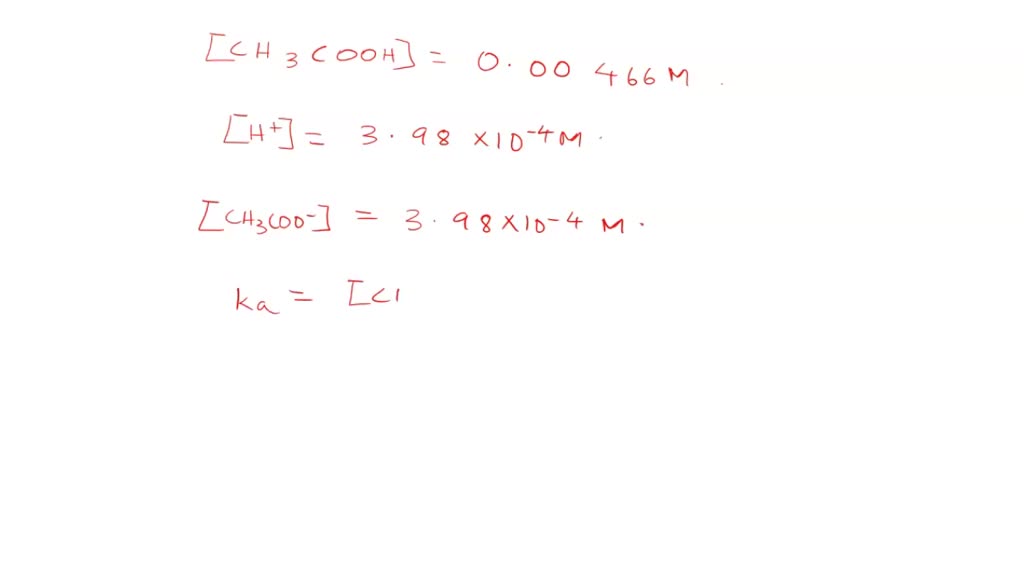 [CH3COOH] = 0.00466M.
[H+] = 3.98 ×10-4M.
[CH3COO-] = 3.98×10-4 M.
ka = [CI